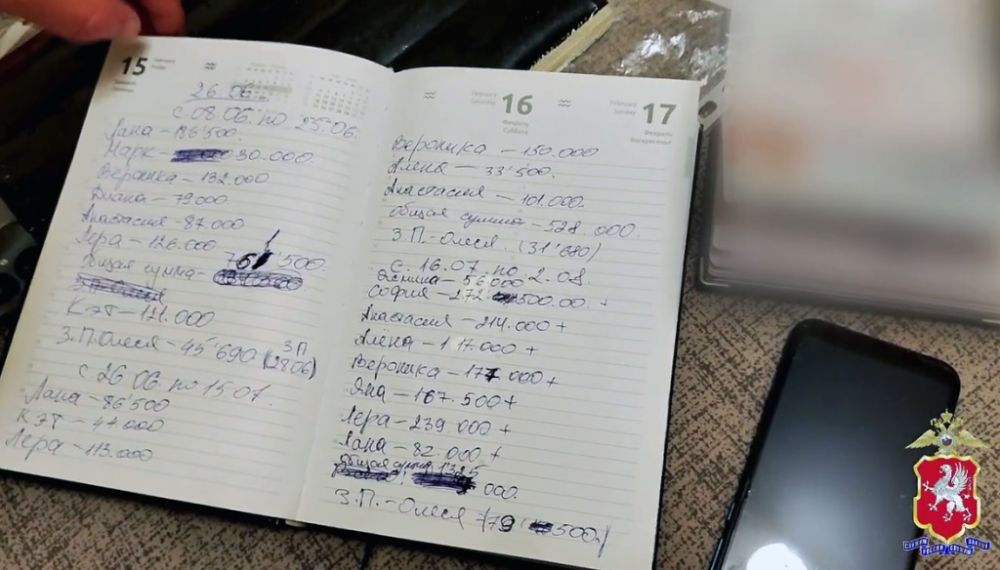 15
February
Friday
Февраль
26.06.
с 08.06. по 25.06.
Лана - 186'500.
Марк - 30.000.
Вероника - 132.000
Диана - 79000
Анастасия - 87000
Лера - 126.000
Общая сумма - 500.
КЭТ - 121.000
З.П. Олеся - 45'690 (28.06)
З П
с 26.06. по 15.07.
Лана - 86'500
КЭТ - 44000
Лера - 113.000
February
Saturday
16
Февраль
Суббота
February
Sunday
17
Февраль
Воскресенье
Вероника - 150.000
Алена - 33'500.
Анастасия - 101.000.
Общая сумма - 528.000.
З.П. - Олеся (31'680)
с 16.07 по 2.08.
56000
София - 272 500.00. +
Анастасия - 214.000 +
Алена - 117.000 +
Вероника - 177 000 +
Яна - 167.500 +
Лера - 239 000 +
Лана - 82.000 +
Общая сумма 000.
З.П. - Олеся /79 500./